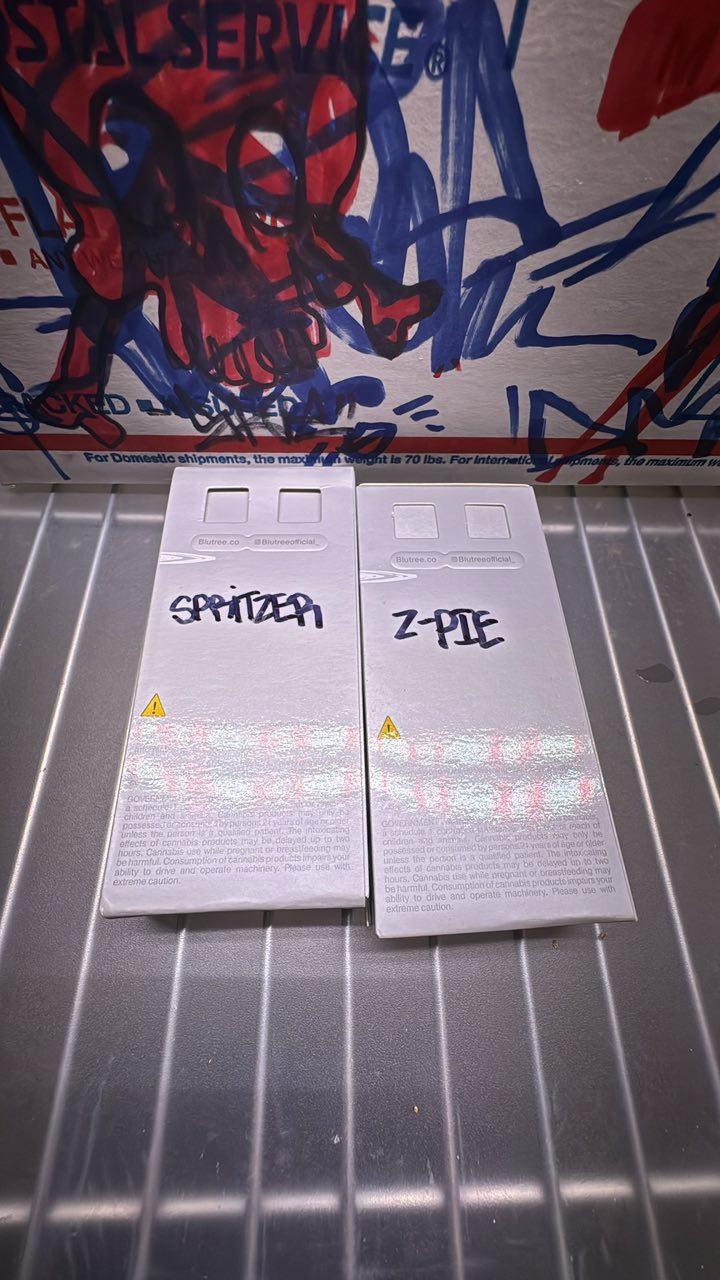 OSTAL SERVICE®
FLA
ANY WEIGHT
ACKED ■ INSURED
For Domestic shipments, the maximum weight is 70 lbs. For International shipments, the maximum w
Blutree.co @Blutreeofficial_
SPRITZER
GOVERNM
a schedule
children and
possessed or consu by persons 21 years of age or older
unless the person is a qualified patient. The intoxicating
effects of cannabis products may be delayed up to two
hours. Cannabis use while pregnant or breastfeeding may
be harmful. Consumption of cannabis products impairs your
ability to drive and operate machinery. Please use with
extreme caution.
Blutree.co @Blutreeofficial_
Z-PIE
GOVERNMENT
a schedule 1 reach of
children and animals. Cannabis products may only be
possessed or consumed by persons 21 years of age or older,
unless the person is a qualified patient. The intoxicating
effects of cannabis products may be delayed up to two
hours. Cannabis use while pregnant or breastfeeding may
be harmful. Consumption of cannabis products impairs your
ability to drive and operate machinery. Please use with
extreme caution.